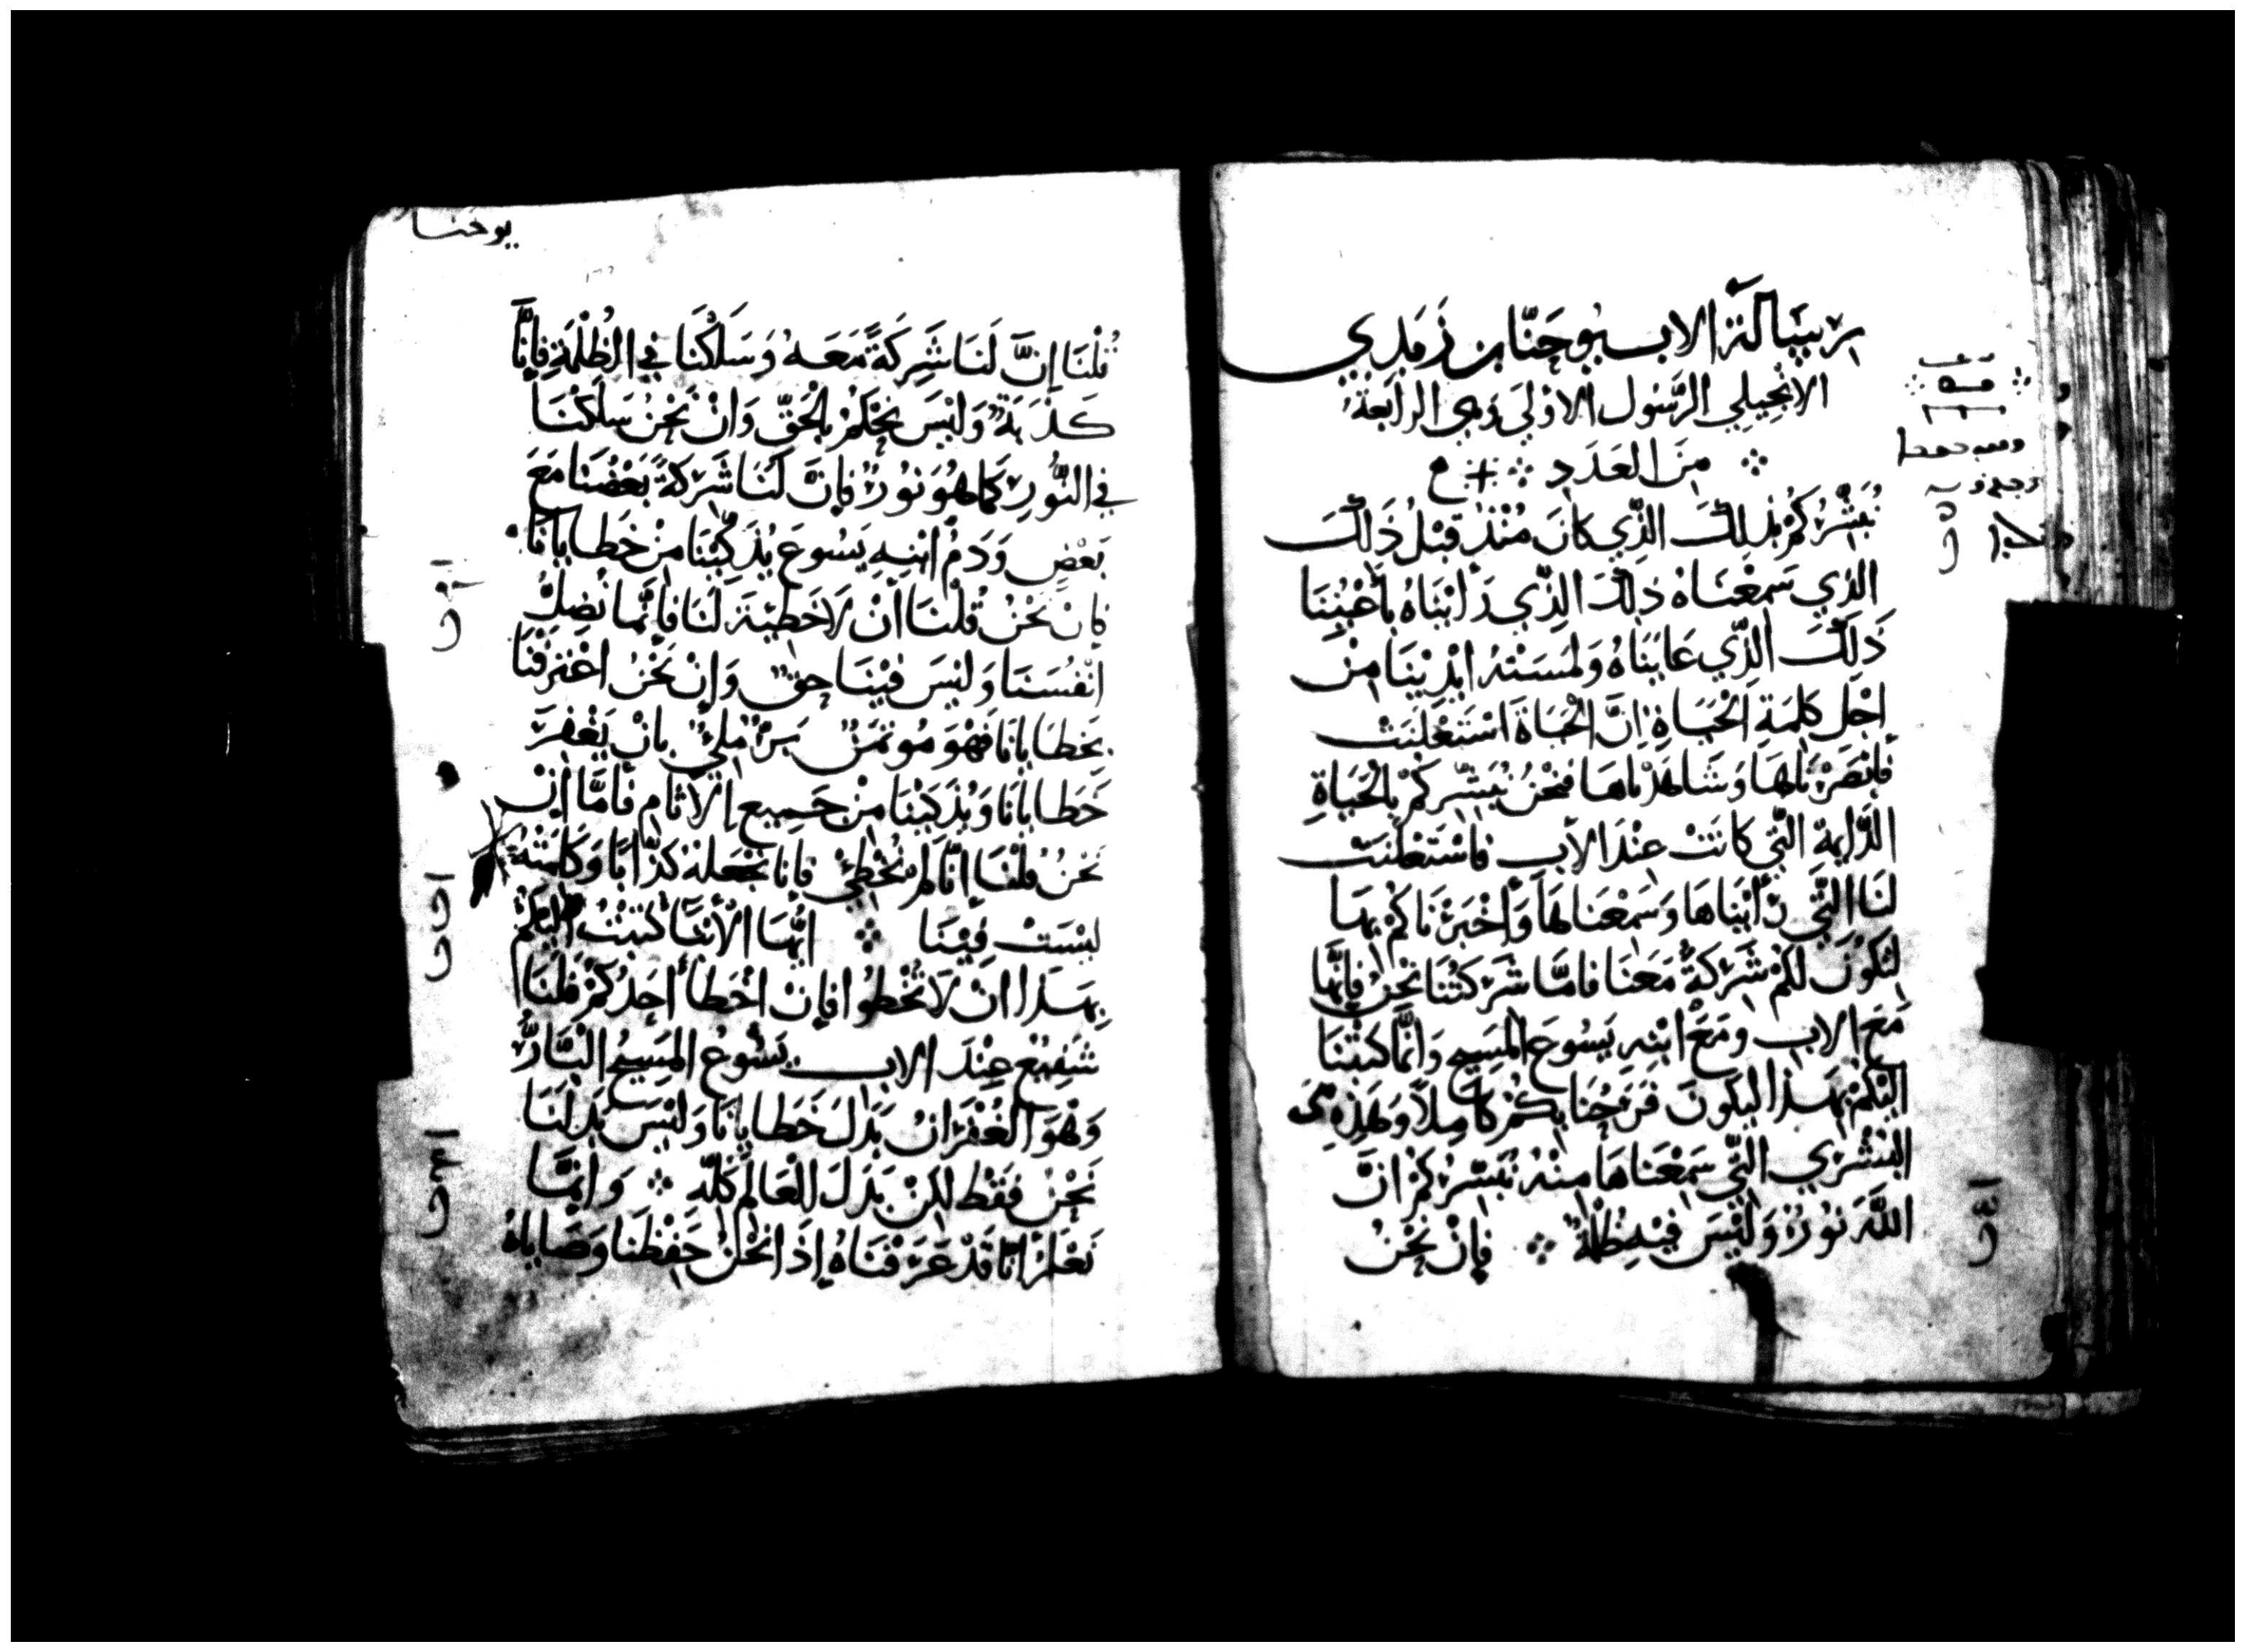 رِسَالَةُ الاب يُوحَنَّا بن زَبَدِي
الانْجِيلِي الرَّسُول الاوْلَي وَهِي الرابَعَة
مِنَ العَدَدِ
نُبَشِّرُكُمْ بِذلِكَ الَّذِي كَانَ مُنْذُ قَبْلُ ذَلِكَ
الذِي سَمِعْنَاهُ ذلِكَ الذِّي رَأَيْنَاهُ بِأَعْيُنِنَا
ذَلِكَ الذِّي عَايَنَاهُ وَلمَسَتْهُ ايْدِيْنَا مِنْ
اجْل كَلِمَةِ الْحَيَاةِ اِنَّ الْحَيَاةَ اسْتَعْلَنَتْ
فَأَبْصَرْنَاهَا وَشَاهَدْنَاهَا فنَحْنُ نُبَشِّركُمْ بِالْحَيَاةِ
الدَّايِمَة التِّي كَانَتْ عِنْدَ الأَب فاسْتَعْلَنَتْ
لَنَا التِّي رَأَيْنَاهَا وَسَمِعْنَا لهَا وَأَخْبَرْنَاكُمْ بِهَا
لِتَكُونَ لَكُمْ شَرِكَةٌ مَعَنَا فامَّا شَرِكَتُنَا نَحْنُ فَاِنَّهَا
مَعَ الاب ومَعَ ابْنِهِ يَسُوعَ المَسِيحِ وَاِنَّمَا كَتَبْنَا
الَيْكُمْ بِهَذا لِيَكُونَ فَرَحُنَا بِكُمْ كَامِلاً وَهَذِهِ هِيَ
البُشْرَي التِّي سَمِعْنَاهَا مِنْهُ نُبَشِّرُكُمْ انَّ
اللَّهَ نُورٌ وَلَيْسَ فِيْهِ ظُلْمَةٌ فَاِنْ نَحْنُ
يوحنا
قُلْنَا اِنَّ لَنَا شَرِكَةً مَعَهُ وَسَلَكْنَا فِي الظُلْمَةِ فَاِنَّا
كَذَبَةٌ وَلَيْسَ نَحْكُمُ بِالْحَقِّ وَانْ نَحْنُ سَلَكْنَا
فِي النُّورِ كَمَا هُوَ نُورٌ فَاِنَّ لَنَا شَرِكَةً بَعْضُنَا مَعَ
بَعْضٍ وَدَمُ ابْنِهِ يَسُوع يُذَكِّيْنَا مِنْ خَطايانَا
فان نَحْنُ قُلْنَا انْ لاَ خَطِيَّةَ لَنَا فَاِنَّما نُضِلُّ
انْفُسَنَا وَلَيْسَ فِيْنَا حَقٌّ وَاِنْ نَحْنُ اعْتَرَفْنَا
بخَطَايانَا فَهْوَ مُوتَمَنٌ بَرٌّ مَلِيٌّ بِان يَغْفِرَ
خَطايانَا وَيُذَكِّيْنَا مِنْ جَمِيعِ الآثامِ فَأَمَّا اِنْ
نَحْنُ قُلْنَا انَّا لَمْ نُخْطِئْ فَاِنا نَجْعَلهُ كَذَّابًا وَكَلِمَتُهُ
لَيْسَتْ فِيْنَا ايُّهَا الأَبْنَا كَتَبْتُ الَيْكُمْ
بِهَذا انْ لاَ تُخْطُوا فَاِنْ اخْطَأَ أَحَدُكُمْ فَلَنَا
شَفِيعٌ عِنْدَ الاب يَسُوعُ المَسِيحُ الْبَارُّ
وَهْوَ الْغُفْرَانُ بَدَلَ خَطايانَا وَلَيْسَ بَدَلَنَا
نَحْنُ فَقَطْ لكِنْ بَدَلَ للْعَالَمِ كُلّهِ وَانَّمَا
نَعْلَمُ انَّا قَدْ عَرَفْنَاهُ اِذَا نَحْنُ حَفِظْنَا وَصَايَاهُ